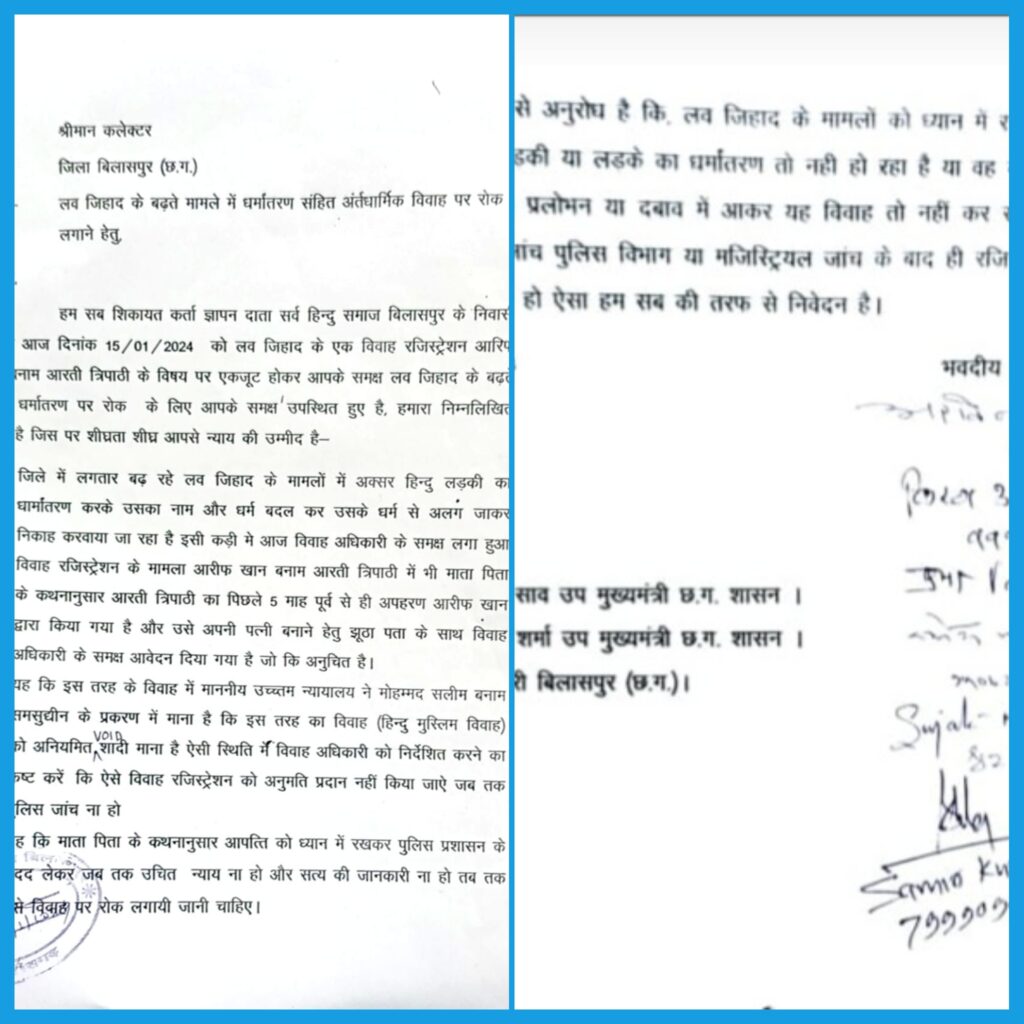 श्रीमान कलेक्टर
जिला बिलासपुर (छ.ग.)
लव जिहाद के बढ़ते मामले में धर्मांतरण संहित अंर्तधार्मिक विवाह पर रोक
लगाने हेतु,
हम सब शिकायत कर्ता ज्ञापन दाता सर्व हिन्दु समाज बिलासपुर के निवास
आज दिनांक 15/01/2024 को लव जिहाद के एक विवाह रजिस्ट्रेशन आरिफ
बनाम आरती त्रिपाठी के विषय पर एकजूट होकर आपके समक्ष लव जिहाद के बढ़ते
धर्मातरण पर रोक के लिए आपके समक्ष उपस्थित हुए है, हमारा निम्नलिखित
है जिस पर शीघ्रता शीघ्र आपसे न्याय की उम्मीद है–
जिले में लगतार बढ़ रहे लव जिहाद के मामलों में अक्सर हिन्दु लड़की का
धार्मातरण करके उसका नाम और धर्म बदल कर उसके धर्म से अलग जाकर
निकाह करवाया जा रहा है इसी कड़ी मे आज विवाह अधिकारी के समक्ष लगा हुआ
विवाह रजिस्ट्रेशन के मामला आरीफ खान बनाम आरती त्रिपाठी में भी माता पिता
के कथनानुसार आरती त्रिपाठी का पिछले 5 माह पूर्व से ही अपहरण आरीफ खान
द्वारा किया गया है और उसे अपनी पत्नी बनाने हेतु झूठा पता के साथ विवाह
अधिकारी के समक्ष आवेदन दिया गया है जो कि अनुचित है।
यह कि इस तरह के विवाह में माननीय उच्च्तम न्यायालय ने मोहम्मद सलीम बनाम
समसुद्यीन के प्रकरण में माना है कि इस तरह का विवाह (हिन्दु मुस्लिम विवाह)
को अनियमित VOID शादी माना है ऐसी स्थिति में विवाह अधिकारी को निर्देशित करने का
कष्ट करें कि ऐसे विवाह रजिस्ट्रेशन को अनुमति प्रदान नहीं किया जाऐ जब तक
पुलिस जांच ना हो
यह कि माता पिता के कथनानुसार आपत्ति को ध्यान में रखकर पुलिस प्रशासन के
मदद लेकर जब तक उचित न्याय ना हो और सत्य की जानकारी ना हो तब तक
विवाह पर रोक लगायी जानी चाहिए।
से अनुरोध है कि, लव जिहाद के मामलों को ध्यान में
लड़की या लड़के का धर्मातरण तो नही हो रहा है या वह
प्रलोभन या दबाव में आकर यह विवाह तो नहीं कर
जांच पुलिस विभाग या मजिस्ट्रियल जांच के बाद ही रजि
हो ऐसा हम सब की तरफ से निवेदन है।
भवदीय
किरन
साव उप मुख्यमंत्री छ.ग. शासन ।
शर्मा उप मुख्यमंत्री छ.ग. शासन ।
री बिलासपुर (छ.ग.)।